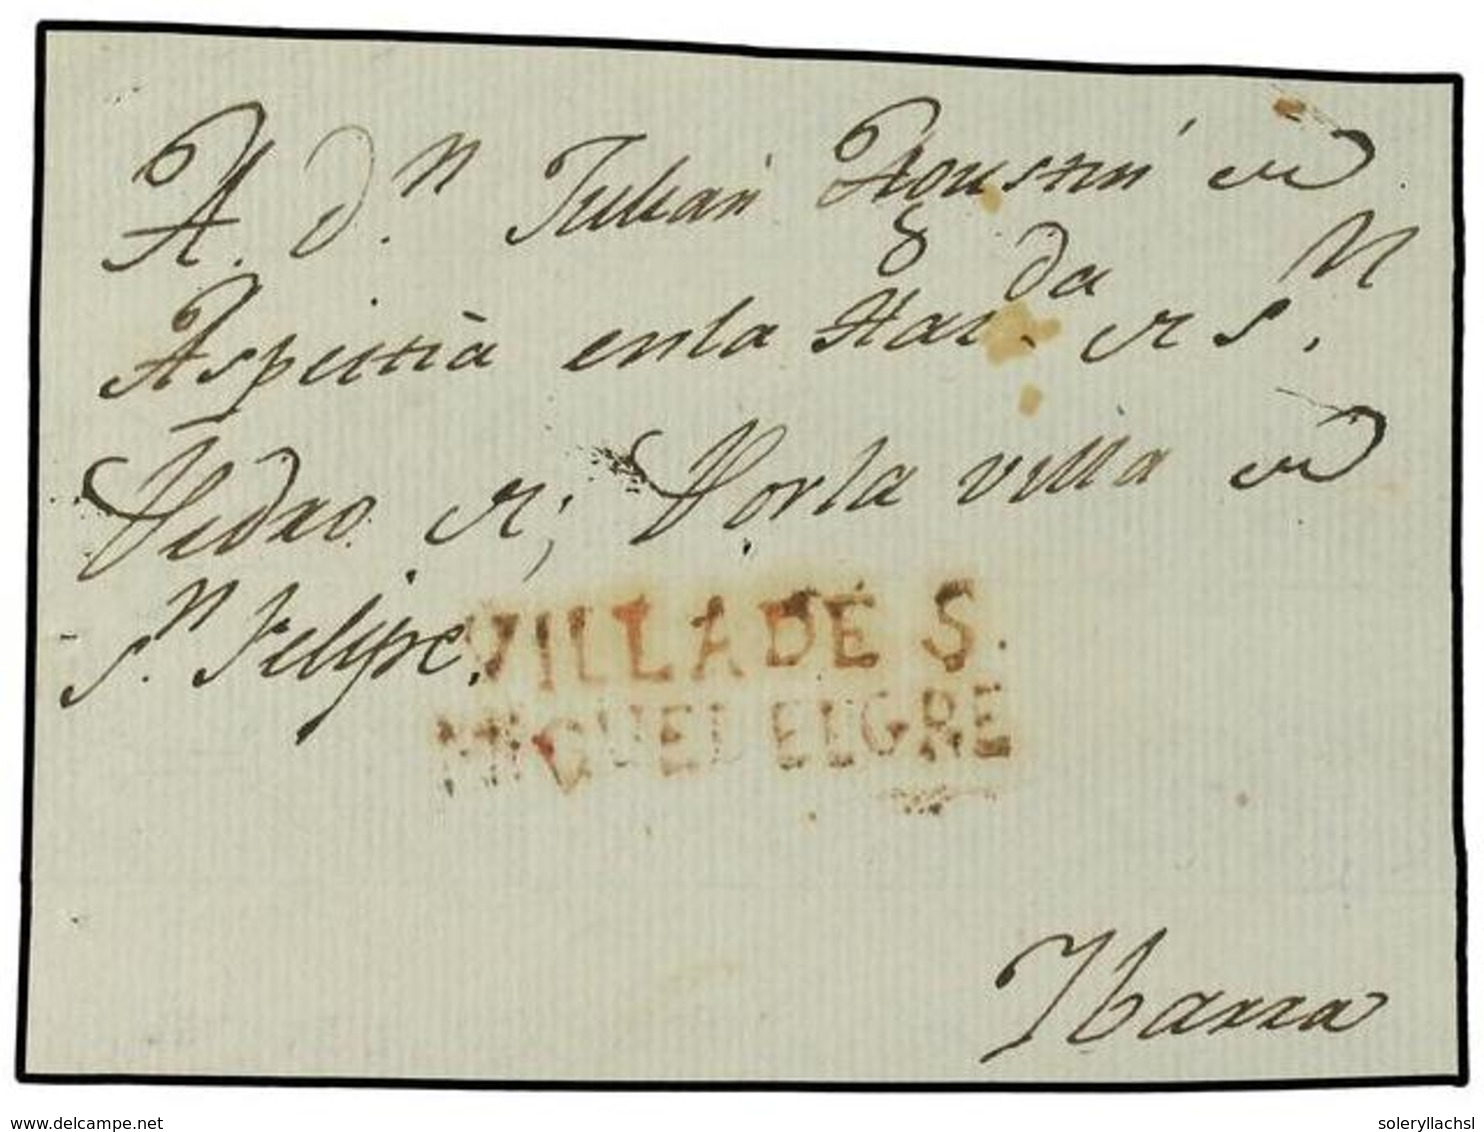 A. d.n Julian Agoustin de
Aspettia en la Haz.da de S.n
Pedro de; Por la villa de
S.n Felipe.
VILLA DE S.
MIGUEL ELGRE
Ibarra
delcampe.net
soleryllachsl